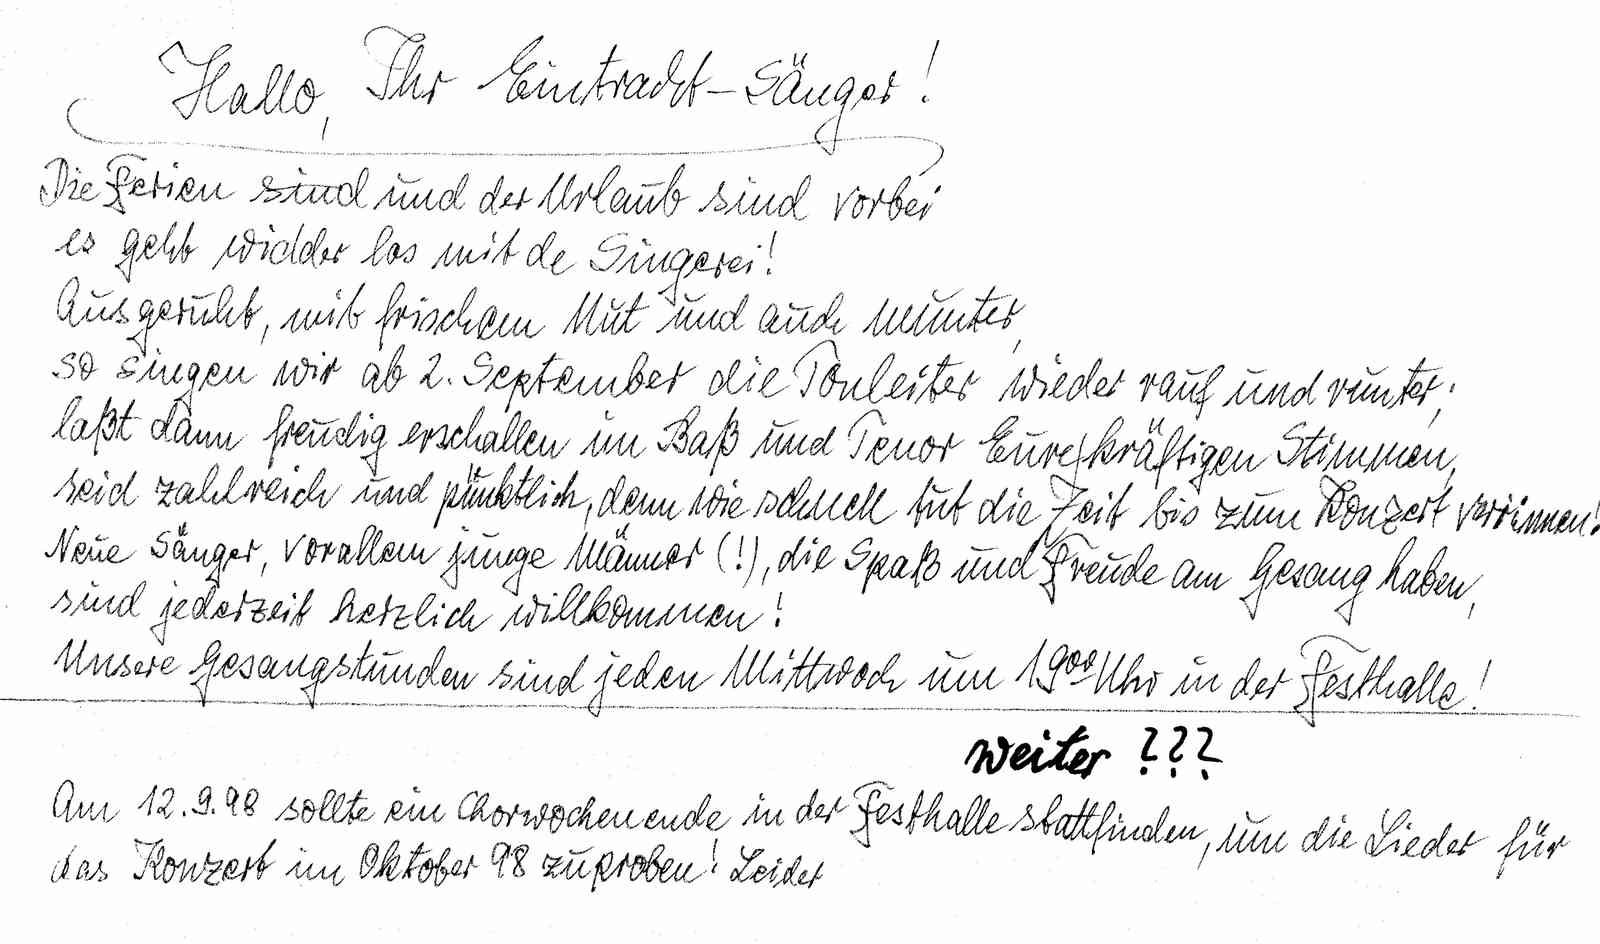 Hallo, Ihr Eintracht-Sänger!
Die Ferien sind und der Urlaub sind vorbei
es geht widder los mit de Singerei!
Ausgeruht, mit frischem Mut und auch munter,
so singen wir ab 2. September die Tonleiter wieder rauf und runter;
laßt dann freudig erschallen im Baß und Tenor Eure kräftigen Stimmen,
seid zahlreich und pünktlich, denn wie schnell tut die Zeit bis zum Konzert verrinnen!
Neue Sänger, vorallem junge Männer (!), die Spaß und Freude am Gesang haben,
sind jederzeit herzlich willkommen!
Unsere Gesangstunden sind jeden Mittwoch um 19⁰⁰ Uhr in der Festhalle!
weiter ???
Am 12.9.98 sollte ein Chorwochenende in der Festhalle stattfinden, um die Lieder für
das Konzert im Oktober 98 zu proben! Leider